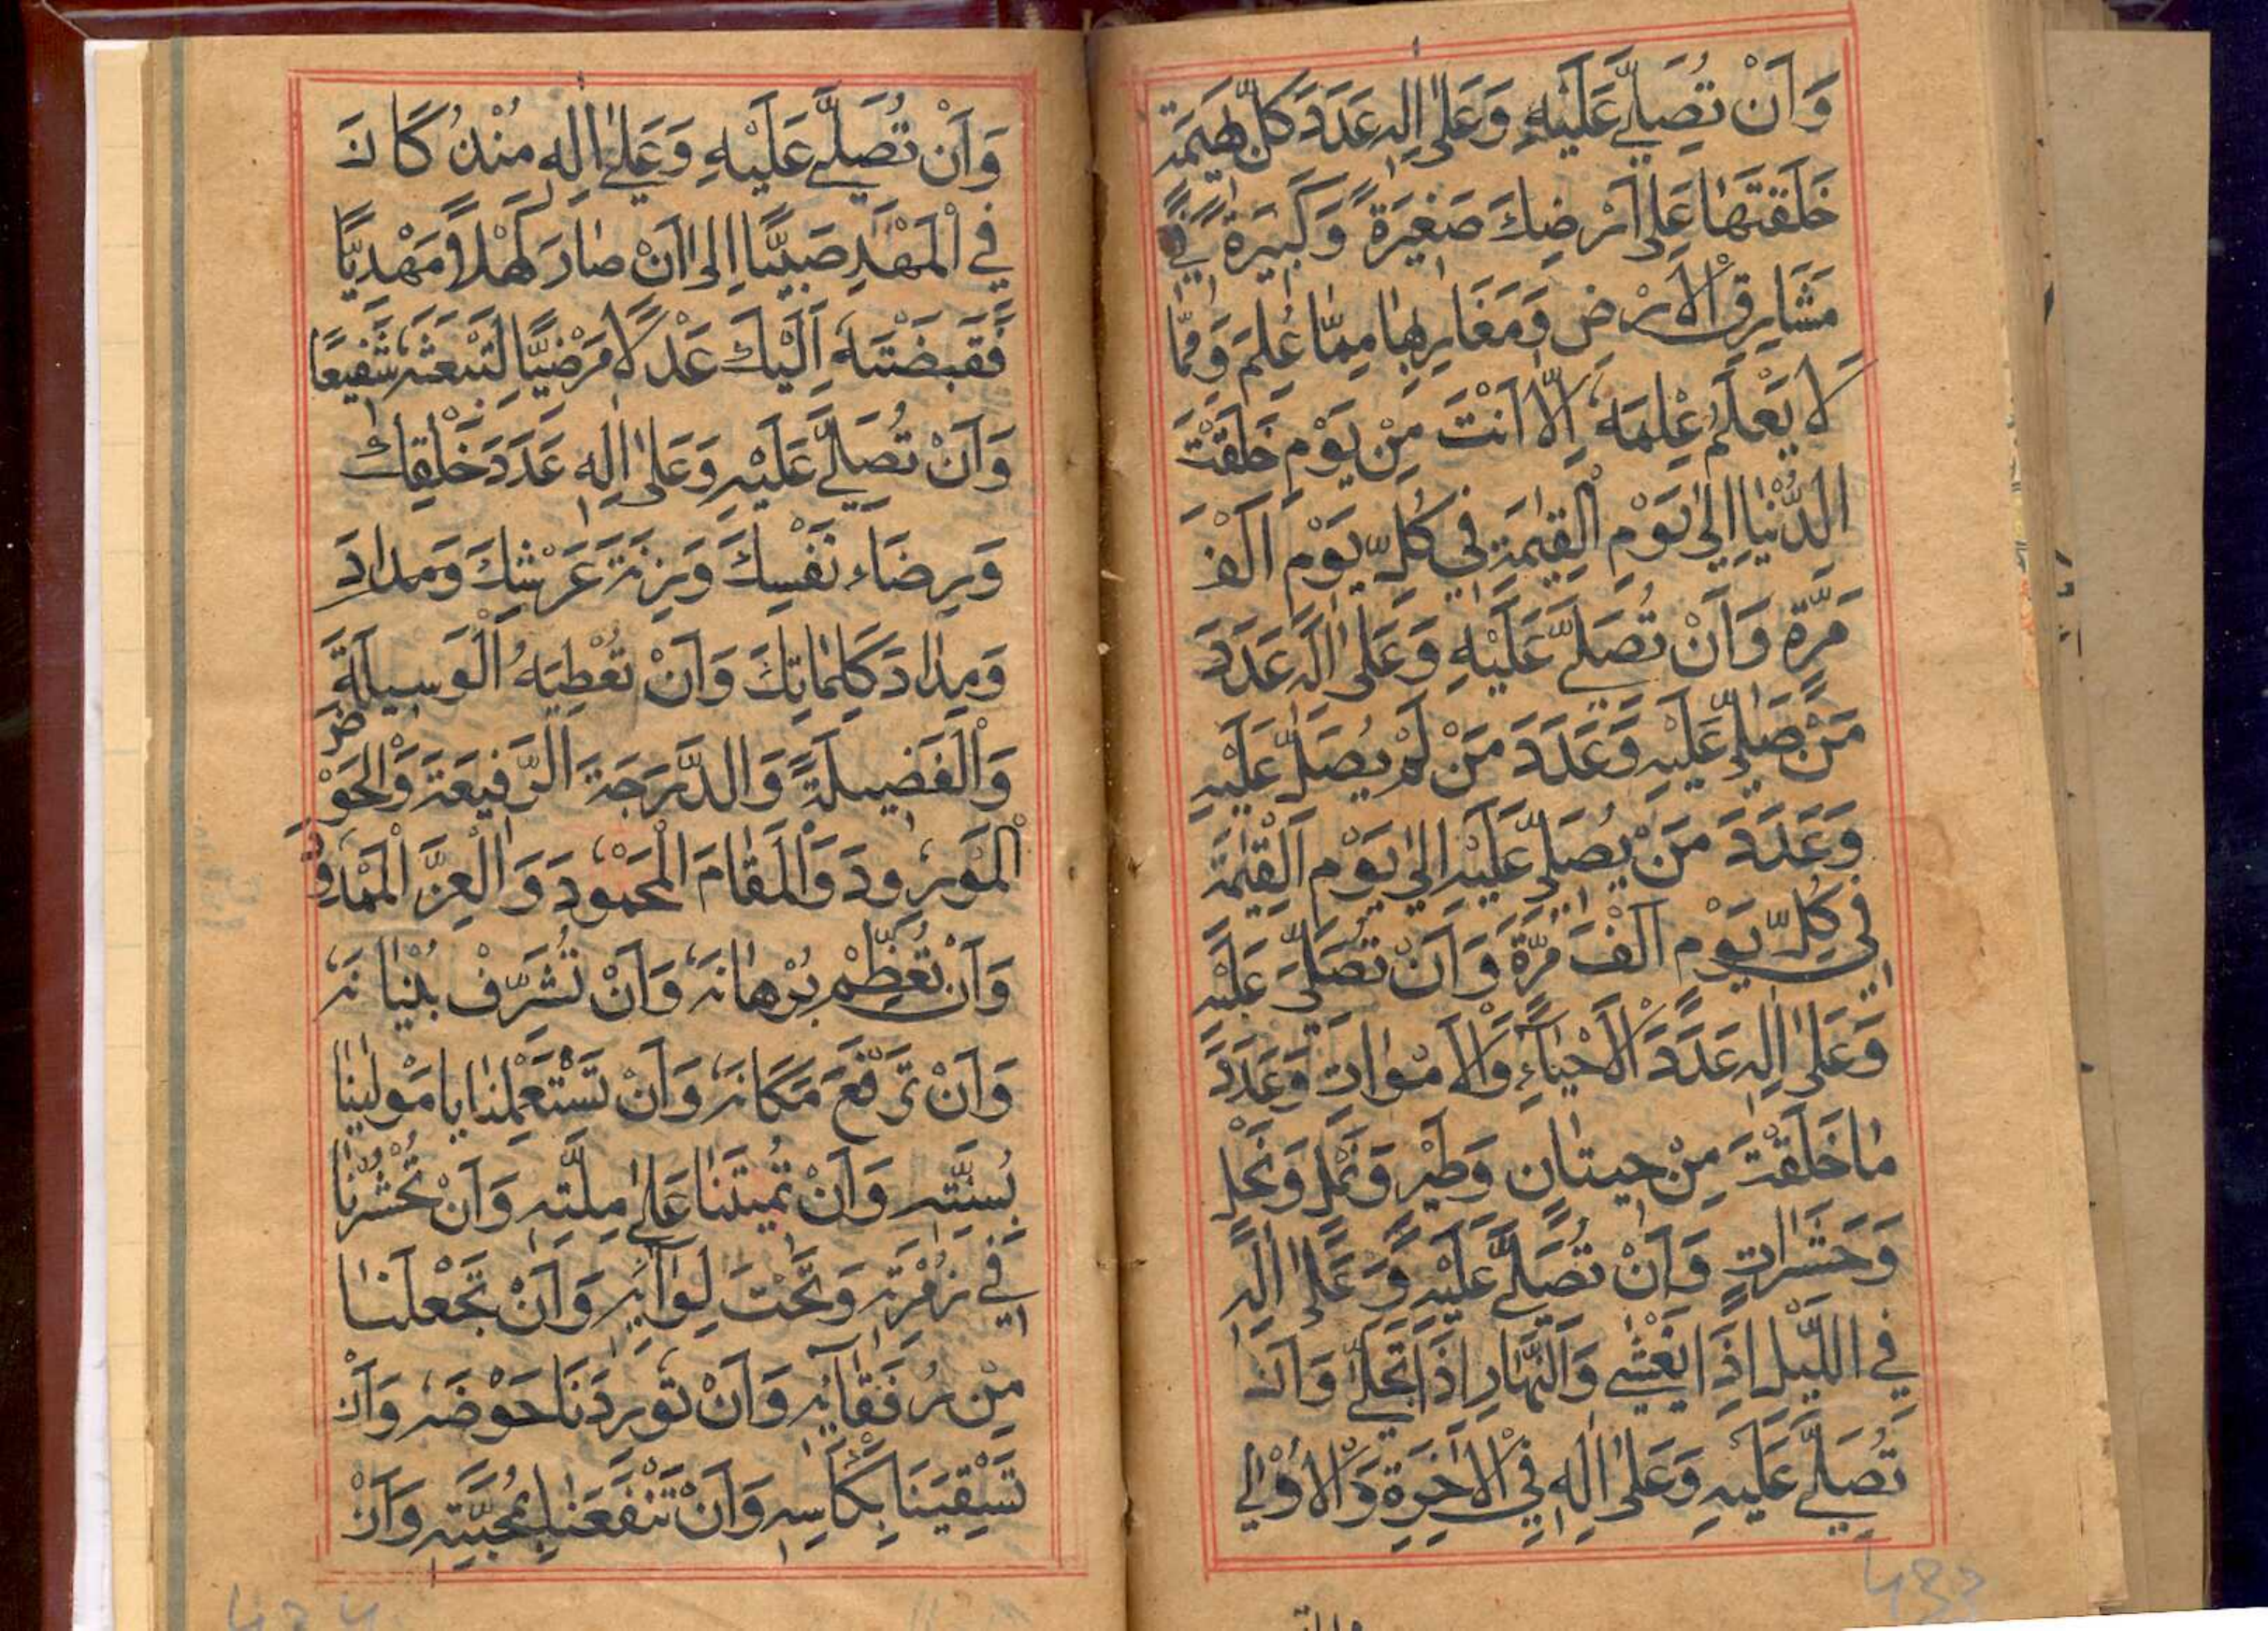 وَاَنْ تُصَلِّيَ عَلَيْهِ وَعَلٰى اٰلِهٖ عَدَدَ كُلِّ بَهِيْمَةٍ
خَلَقْتَهَا عَلٰى اَرْضِكَ صَغِيْرَةً وَّكَبِيْرَةً فِيْ
مَشَارِقِ الْاَرْضِ وَمَغَارِبِهَا مِمَّا عُلِمَ وَمِمَّا
لَا يَعْلَمُ عِلْمَهٗ اِلَّا اَنْتَ مِنْ يَوْمِ خَلَقْتَ
الدُّنْيَا اِلٰى يَوْمِ الْقِيٰمَةِ فِيْ كُلِّ يَوْمٍ اَلْفَ
مَرَّةٍ وَاَنْ تُصَلِّيَ عَلَيْهِ وَعَلٰى اٰلِهٖ عَدَدَ
مَنْ صَلّٰى عَلَيْهِ وَعَدَدَ مَنْ لَمْ يُصَلِّ عَلَيْهِ
وَعَدَدَ مَنْ يُصَلِّيْ عَلَيْهِ اِلٰى يَوْمِ الْقِيٰمَةِ
فِيْ كُلِّ يَوْمٍ اَلْفَ مَرَّةٍ وَاَنْ تُصَلِّيَ عَلَيْهِ
وَعَلٰى اٰلِهٖ عَدَدَ الْاَحْيَآءِ وَالْاَمْوَاتِ وَعَدَدَ
مَا خَلَقْتَ مِنْ حِيْتَانٍ وَطَيْرٍ وَنَمْلٍ وَنَحْلٍ
وَحَشَرَاتٍ وَاَنْ تُصَلِّيَ عَلَيْهِ وَعَلٰى اٰلِهٖ
فِي اللَّيْلِ اِذَا يَغْشٰى وَالنَّهَارِ اِذَا تَجَلّٰى وَاَنْ
تُصَلِّيَ عَلَيْهِ وَعَلٰى اٰلِهٖ فِي الْاٰخِرَةِ وَالْاُوْلٰى
وَاَنْ تُصَلِّيَ عَلَيْهِ وَعَلٰى اٰلِهٖ مُنْذُ كَانَ
فِي الْمَهْدِ صَبِيًّا اِلٰى اَنْ صَارَ كَهْلًا مَهْدِيًّا
فَقَبَضْتَهٗ اِلَيْكَ عَدْلًا مَرْضِيًّا لِتَبْعَثَهٗ شَفِيْعًا
وَاَنْ تُصَلِّيَ عَلَيْهِ وَعَلٰى اٰلِهٖ عَدَدَ خَلْقِكَ
وَرِضَاءَ نَفْسِكَ وَزِنَةَ عَرْشِكَ وَمِدَادَ
وَمِدَادَ كَلِمَاتِكَ وَاَنْ تُعْطِيَهُ الْوَسِيْلَةَ
وَالْفَضِيْلَةَ وَالدَّرَجَةَ الرَّفِيْعَةَ وَالْحَوْضَ
الْمَوْرُوْدَ وَالْمَقَامَ الْمَحْمُوْدَ وَالْعِزَّ الْمَمْدُوْدَ
وَاَنْ تُعَظِّمَ بُرْهَانَهٗ وَاَنْ تُشَرِّفَ بُنْيَانَهٗ
وَاَنْ تَرْفَعَ مَكَانَهٗ وَاَنْ تَسْتَعْمِلَنَا يَا مَوْلٰينَا
بِسُنَّتِهٖ وَاَنْ تُمِيْتَنَا عَلٰى مِلَّتِهٖ وَاَنْ تَحْشُرَنَا
فِيْ زُمْرَتِهٖ وَتَحْتَ لِوَآئِهٖ وَاَنْ تَجْعَلَنَا
مِنْ رُفَقَآئِهٖ وَاَنْ تُوْرِدَنَا حَوْضَهٗ وَاَنْ
تَسْقِيَنَا بِكَاْسِهٖ وَاَنْ تَنْفَعَنَا بِمَحَبَّتِهٖ وَاَنْ